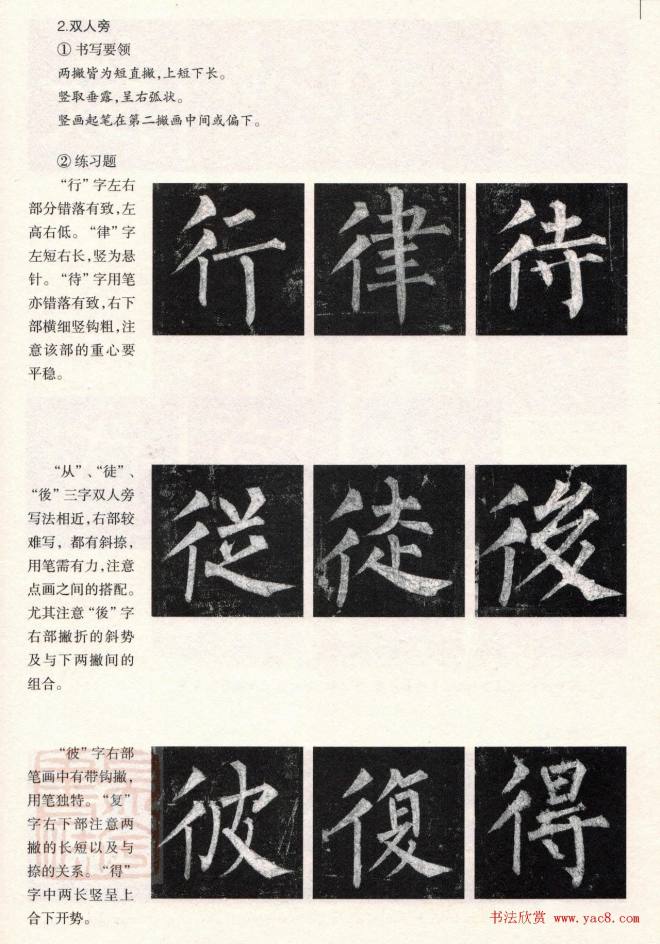 2.双人旁
① 书写要领
两撇皆为短直撇，上短下长。
竖取垂露，呈右弧状。
竖画起笔在第二撇画中间或偏下。
② 练习题
“行”字左右
部分错落有致，左
高右低。“律”字
左短右长，竖为悬
针。“待”字用笔
亦错落有致，右下
部横细竖钩粗，注
意该部的重心要
平稳。
行 律 待
“从”、“徒”、
“後”三字双人旁
写法相近，右部较
难写，都有斜捺，
用笔需有力，注意
点画之间的搭配。
尤其注意“後”字
右部撇折的斜势
及与下两撇间的
组合。
従 徒 後
“彼”字右部
笔画中有带钩撇，
用笔独特。“复”
字右下部注意两
撇的长短以及与
捺的关系。“得”
字中两长竖呈上
合下开势。
彼 復 得
书法欣赏 www.yac8.com